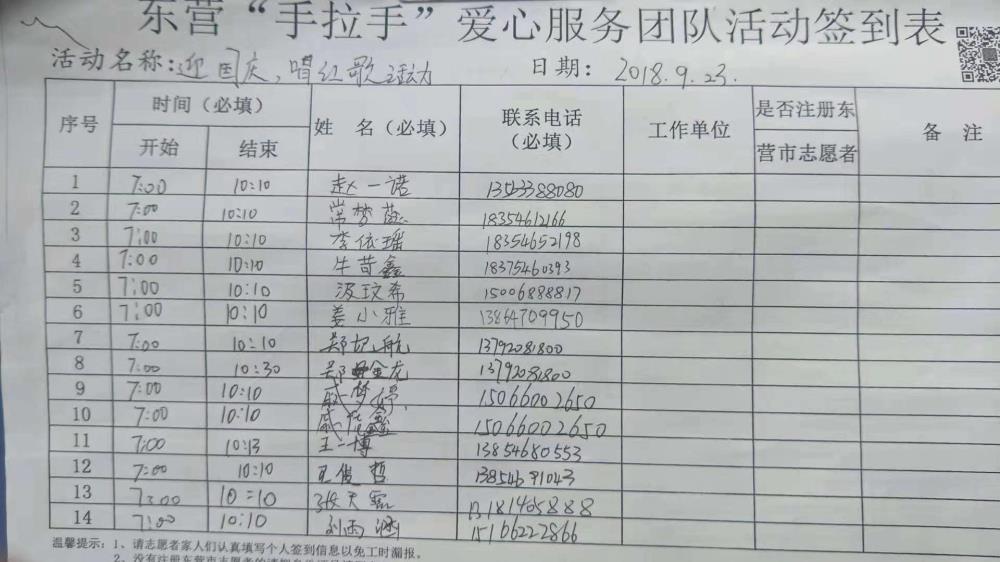 东营“手拉手”爱心服务团队活动签到表
活动名称:迎国庆、唱红歌活动 日期: 2018.9.23.
序号 时间（必填） 姓 名（必填） 联系电话（必填） 工作单位 是否注册东营市志愿者 备 注
开始 结束
1 7:00 10:10 赵一诺 13533388080
2 7:00 10:10 常梦薇 18354612166
3 7:00 10:10 李依瑶 18354652198
4 7:00 10:10 牛苛鑫 18375460393
5 7:00 10:10 汲玟希 15006888817
6 7:00 10:10 姜小雅 13864709950
7 7:00 10:10 郑 航 13792081800
8 7:00 10:30 郑金龙 13792081800
9 7:00 10:10 戚梦婷 15066002650
10 7:00 10:10 戚 鑫 15066002650
11 7:00 10:13 王一博 13854680553
12 7:00 10:10 王俊哲 13854691043
13 7:00 10:10 张天 13181405888
14 7:00 10:10 刘雨涵 15106222866
温馨提示：1、请志愿者家人们认真填写个人签到信息以免工时漏报。
2、没有注册东营市志愿者的请